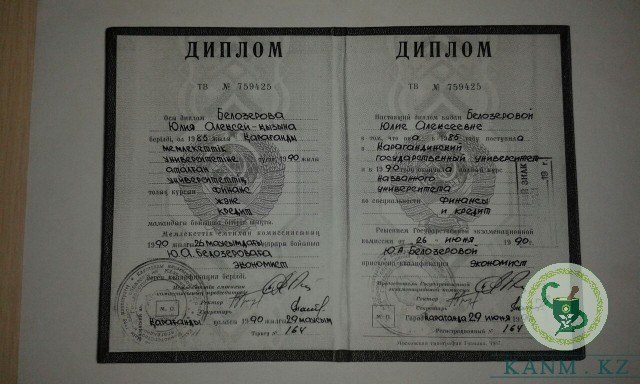 ДИПЛОМ
ТВ № 759425
Осы диплом Белозерова
Юлия Алексей-қызына
берілді, ол 1985 жылы Қарағанды
мемлекеттік
университетіне түсіп 1990 жылы
аталған
университеттің
толық курсын финанс
және
кредит
мамандығы бойынша бітіріп шықты.
Мемлекеттік емтихан комиссиясының
1990 жылғы 26 маусымдағы
Ю.А.Белозероваға
экономист
М.О.
Қарағанды қаласы 1990 жылғы 29 маусым
Тіркеу № 164
ДИПЛОМ
ТВ № 759425
Настоящий диплом выдан Белозеровой
Юлие Алексеевне
в том, что она в 1985 году поступила
в Карагандинский
государственный университет
и в 1990 году окончила полный курс
названного
университета
по специальности финансы
и кредит
Решением Государственной экзаменационной
комиссии от 26 июня 1990 г.
Ю.А.Белозеровой
присвоена квалификация экономист
Председатель Государственной
экзаменационной комиссии
Ректор
Секретарь
М.П.
Город Караганда 29 июня 1990
Регистрационный № 164
KANM.KZ